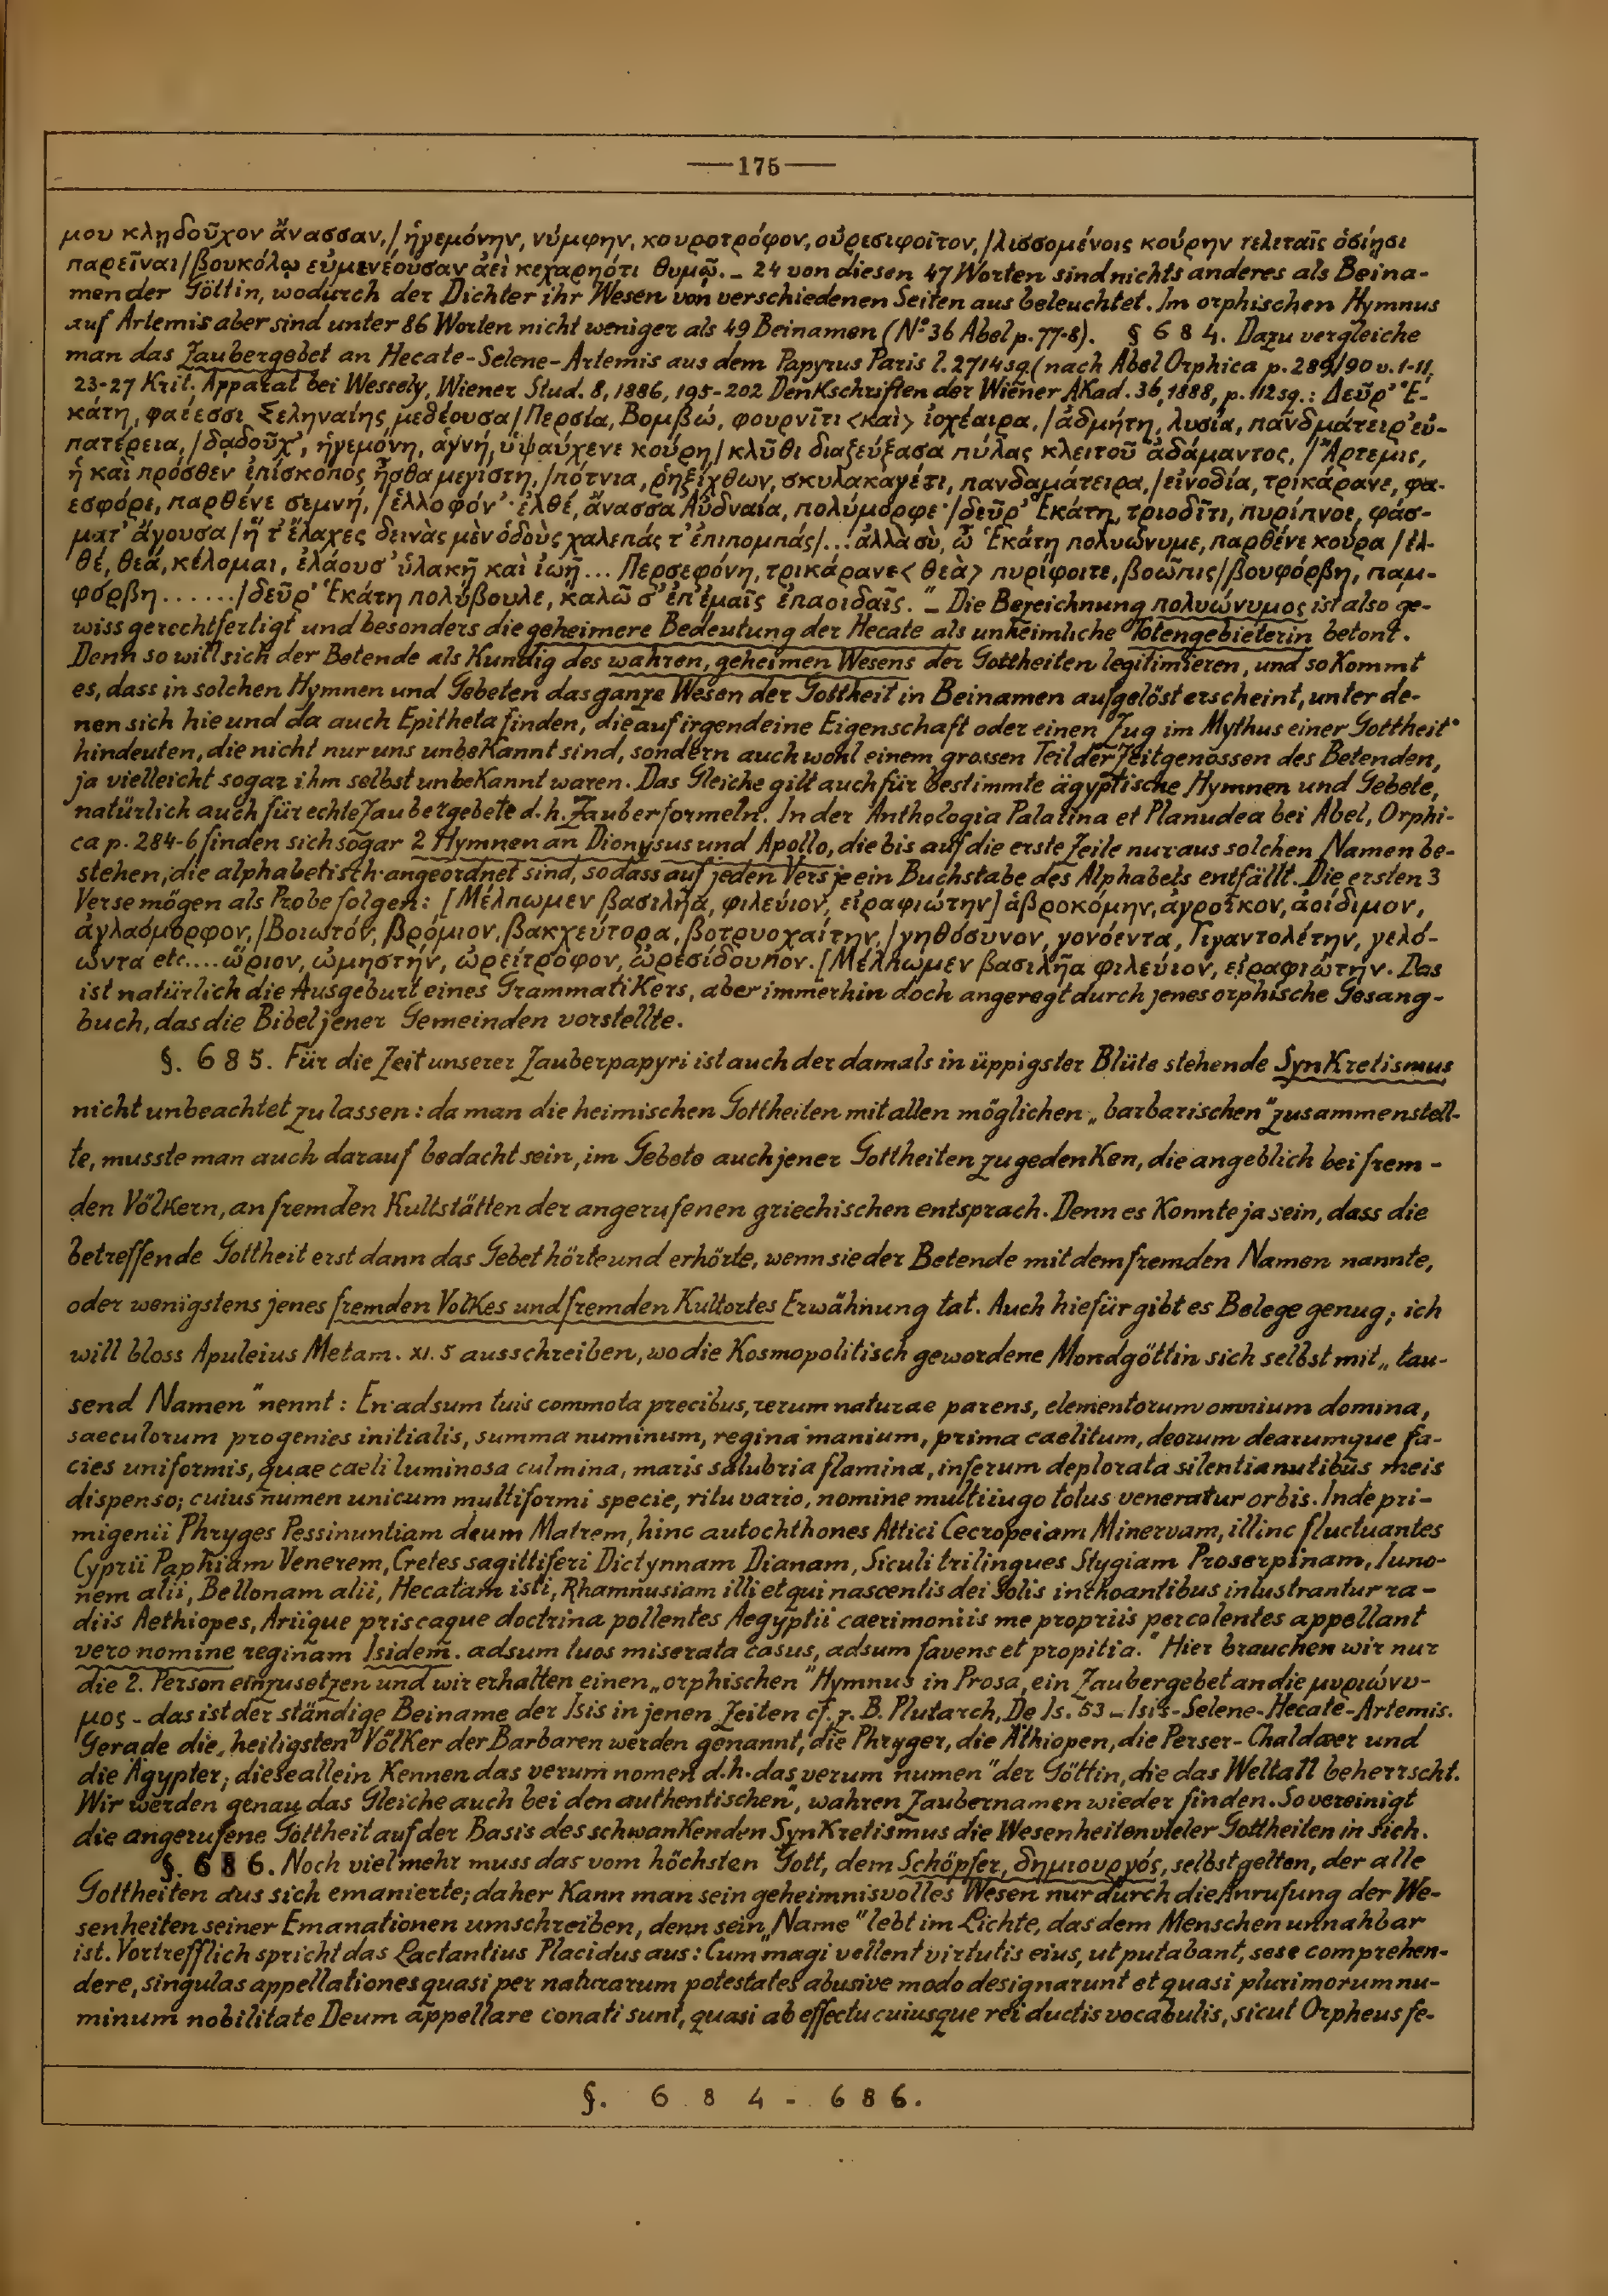 —175—
μου κληδοῦχον ἄνασσαν,/ἡγεμόνην, νύμφην, κουροτρόφον, οὐρεσιφοῖτον,/λισσομένοις κούρην τελεταῖς ὁσίησι
παρεῖναι/βουκόλῳ εὐμενέουσαν ἀεὶ κεχαρηότι θυμῷ._ 24 von diesen 47 Worten sind nichts anderes als Beina-
men der Göttin, wodurch der Dichter ihr Wesen von verschiedenen Seiten aus beleuchtet. Im orphischen Hymnus
auf Artemis aber sind unter 86 Worten nicht weniger als 49 Beinamen (No 36 Abel p. 77-8). § 684. Dazu vergleiche
man das Zaubergebet an Hecate-Selene-Artemis aus dem Papyrus Paris l. 2714 sq. (nach Abel Orphica p. 289/90 v. 1-11,
23-27 Krit. Apparat bei Wessely, Wiener Stud. 8, 1886, 195-202 Denkschriften der Wiener Akad. 36, 1888, p. 112 sg.: Δεῦρ' Ἑ-
κάτη, φαέεσσι Σεληναίης μεδέουσα/Περσία, Βομβώ, φουρνῖτι <καὶ> ἰοχέαιρα,/ἀδμήτη, λυσία, πανδμάτειρ' εὐ-
πατέρεια,/δᾳδοῦχ', ἡγεμόνη, ἁγνή, ὑψαύχενε κούρη/κλῦθι διαζεύξασα πύλας κλειτοῦ ἀδάμαντος,/Ἄρτεμις,
ἣ καὶ πρόσθεν ἐπίσκοπος ἦσθα μεγίστη,/πότνια, ῥηξίχθων, σκυλακαγέτι, πανδαμάτειρα,/εἰνοδία, τρικάρανε, φα-
εσφόρε, παρθένε σεμνή,/ἑλλοφόν'· ἐλθέ, ἄνασσα Αὐδναία, πολύμορφε·/δεῦρ' Ἑκάτη, τριοδῖτι, πυρίπνοε, φάσ-
ματ' ἄγουσα/ἥ τ' ἔλαχες δεινὰς μὲν ὁδοὺς χαλεπάς τ' ἐπιπομπάς/... ἀλλὰ σὺ, ὦ Ἑκάτη πολυώνυμε, παρθένε κούρα/ἐλ-
θέ, θεά, κέλομαι, ἐλάουσ' ὑλακῇ καὶ ἰωῇ... Περσεφόνη, τρικάρανε <θεὰ> πυρίφοιτε, βοῶπις/βουφόρβη, παμ-
φόρβη....../δεῦρ' Ἑκάτη πολύβουλε, καλῶ σ' ἐπ' ἐμαῖς ἐπαοιδαῖς."_ Die Bezeichnung πολυώνυμος ist also ge-
wiss gerechtfertigt und besonders die geheimere Bedeutung der Hecate als unheimliche Totengebieterin betont.
Denn so will sich der Betende als Kundig des wahren, geheimen Wesens der Gottheiten legitimieren, und so kommt
es, dass in solchen Hymnen und Gebeten das ganze Wesen der Gottheit in Beinamen aufgelöst erscheint, unter de-
nen sich hie und da auch Epitheta finden, die auf irgend eine Eigenschaft oder einen Zug im Mythus einer Gottheit
hindeuten, die nicht nur uns unbekannt sind, sondern auch wohl einem grossen Teil der Zeitgenossen des Betenden,
ja vielleicht sogar ihm selbst unbekannt waren. Das Gleiche gilt auch für bestimmte ägyptische Hymnen und Gebete,
natürlich auch für echte Zaubergebete d.h. Zauberformeln. In der Anthologia Palatina et Planudea bei Abel, Orphi-
ca p. 284-6 finden sich sogar 2 Hymnen an Dionysus und Apollo, die bis auf die erste Zeile nur aus solchen Namen be-
stehen, die alphabetisch angeordnet sind, so dass auf jeden Vers je ein Buchstabe des Alphabets entfällt. Die ersten 3
Verse mögen als Probe folgen: [Μέλπωμεν βασιλῆα, φιλεύιον, εἰραφιώτην] ἁβροκόμην, ἀγροῖκον, ἀοίδιμον,
ἀγλαόμορφον,/Βοιωτόν, βρόμιον, βακχεύτορα, βοτρυοχαίτην,/γηθόσυνον, γονόεντα, Γιγαντολέτην, γελό-
ωντα etc.... ὥριον, ὠμηστήν, ὠρείτροφον, ὠρεσίδουπον. [Μέλπωμεν βασιλῆα φιλεύιον, εἰραφιώτην. Das
ist natürlich die Ausgeburt eines Grammatikers, aber immerhin doch angeregt durch jenes orphische Gesang-
buch, das die Bibel jener Gemeinden vorstellte.
§. 685. Für die Zeit unserer Zauberpapyri ist auch der damals in üppigster Blüte stehende Synkretismus
nicht unbeachtet zu lassen: da man die heimischen Gottheiten mit allen möglichen „barbarischen" zusammenstell-
te, musste man auch darauf bedacht sein, im Gebete auch jener Gottheiten zu gedenken, die angeblich bei frem-
den Völkern, an fremden Kultstätten der angerufenen griechischen entsprach. Denn es konnte ja sein, dass die
betreffende Gottheit erst dann das Gebet hörte und erhörte, wenn sie der Betende mit dem fremden Namen nannte,
oder wenigstens jenes fremden Volkes und fremden Kultortes Erwähnung tat. Auch hiefür gibt es Belege genug; ich
will bloss Apuleius Metam. XI. 5 ausschreiben, wo die kosmopolitisch gewordene Mondgöttin sich selbst mit „tau-
send Namen" nennt: En adsum tuis commota precibus, rerum naturae parens, elementorum omnium domina,
saeculorum progenies initialis, summa numinum, regina manium, prima caelitum, deorum dearumque fa-
cies uniformis, quae caeli luminosa culmina, maris salubria flamina, inferum deplorata silentia nutibus meis
dispenso; cuius numen unicum multiformi specie, ritu vario, nomine multiiugo totus veneratur orbis. Inde pri-
migenii Phryges Pessinuntiam deum Matrem, hinc autochthones Attici Cecropeiam Minervam, illinc fluctuantes
Cyprii Paphiam Venerem, Cretes sagittiferi Dictynnam Dianam, Siculi trilingues Stygiam Proserpinam, Iuno-
nem alii, Bellonam alii, Hecatam isti, Rhamnusiam illi et qui nascentis dei Solis inchoantibus inlustrantur ra-
diis Aethiopes, Ariique priscaque doctrina pollentes Aegyptii caerimoniis me propriis percolentes appellant
vero nomine reginam Isidem. adsum tuos miserata casus, adsum favens et propitia." Hier brauchen wir nur
die 2. Person einzusetzen und wir erhalten einen „orphischen" Hymnus in Prosa, ein Zaubergebet an die μυριώνυ-
μος - das ist der ständige Beiname der Isis in jenen Zeiten cf. z. B. Plutarch, De Is. 53 _ Isis-Selene-Hecate-Artemis.
Gerade die „heiligsten" Völker der Barbaren werden genannt, die Phryger, die Äthiopen, die Perser-Chaldaeer und
die Ägypter; diese allein kennen das verum nomen d.h. das „verum numen" der Göttin, die das Weltall beherrscht.
Wir werden genau das Gleiche auch bei den authentischen", wahren Zaubernamen wieder finden. So vereinigt
die angerufene Gottheit auf der Basis des schwankenden Synkretismus die Wesenheiten vieler Gottheiten in sich.
§. 686. Noch viel mehr muss das vom höchsten Gott, dem Schöpfer, δημιουργός, selbst gelten, der alle
Gottheiten aus sich emanierte; daher kann man sein geheimnisvolles Wesen nur durch die Anrufung der We-
senheiten seiner Emanationen umschreiben, denn sein „Name" lebt im Lichte, das dem Menschen unnahbar
ist. Vortrefflich spricht das Lactantius Placidus aus: Cum magi vellent virtutis eius, ut putabant, sese comprehen-
dere, singulas appellationes quasi per naturarum potestates abusive modo designarunt et quasi plurimorum nu-
minum nobilitate Deum appellare conati sunt, quasi ab effectu cuiusque rei ductis vocabulis, sicut Orpheus fe-
§. 684-686.